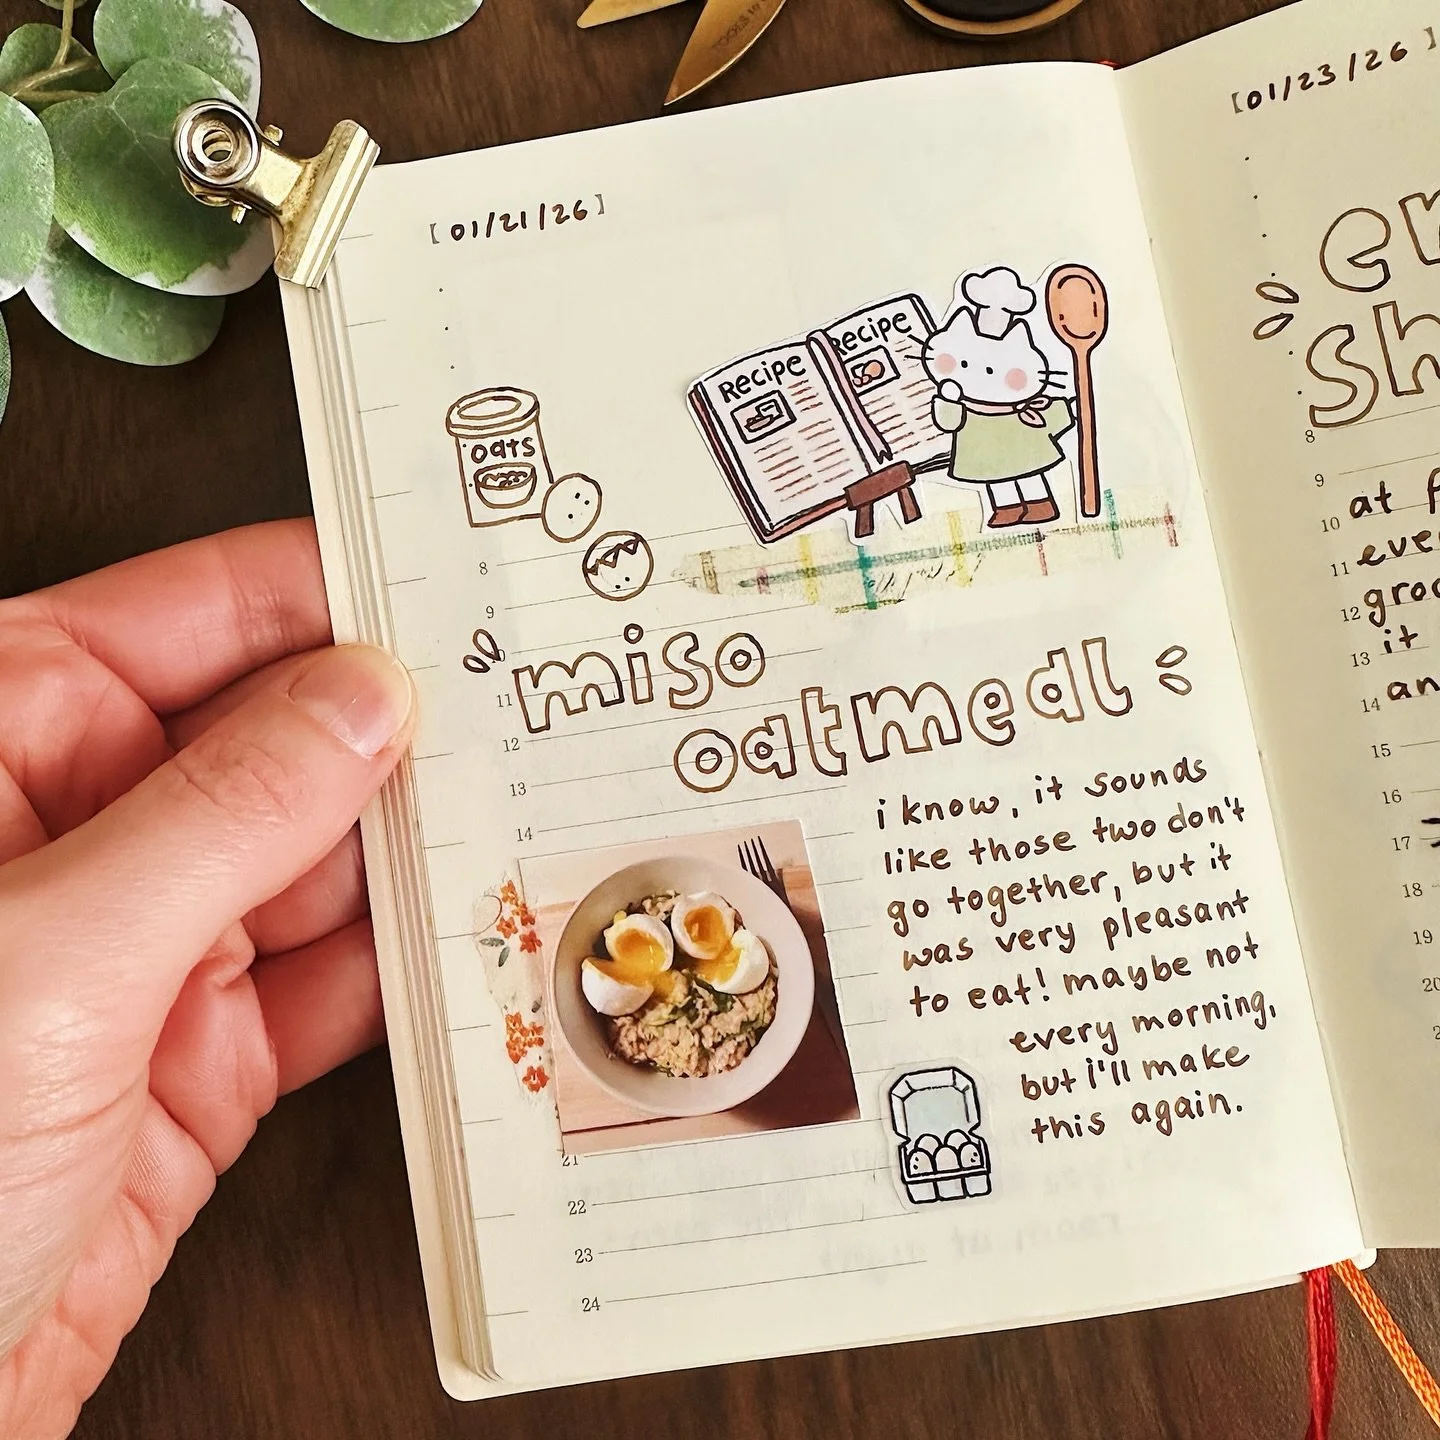 [01/21/26]
Recipe
Recipe
oats
8
9
11
12
13
14
miso
oatmeal
i know, it sounds
like those two don't
go together, but it
was very pleasant
to eat! maybe not
every morning,
but i'll make
this again.
21
22
23
24
[01/23/26]
8
9
10
11
12
13
14
15
16
17
18
19
at
it